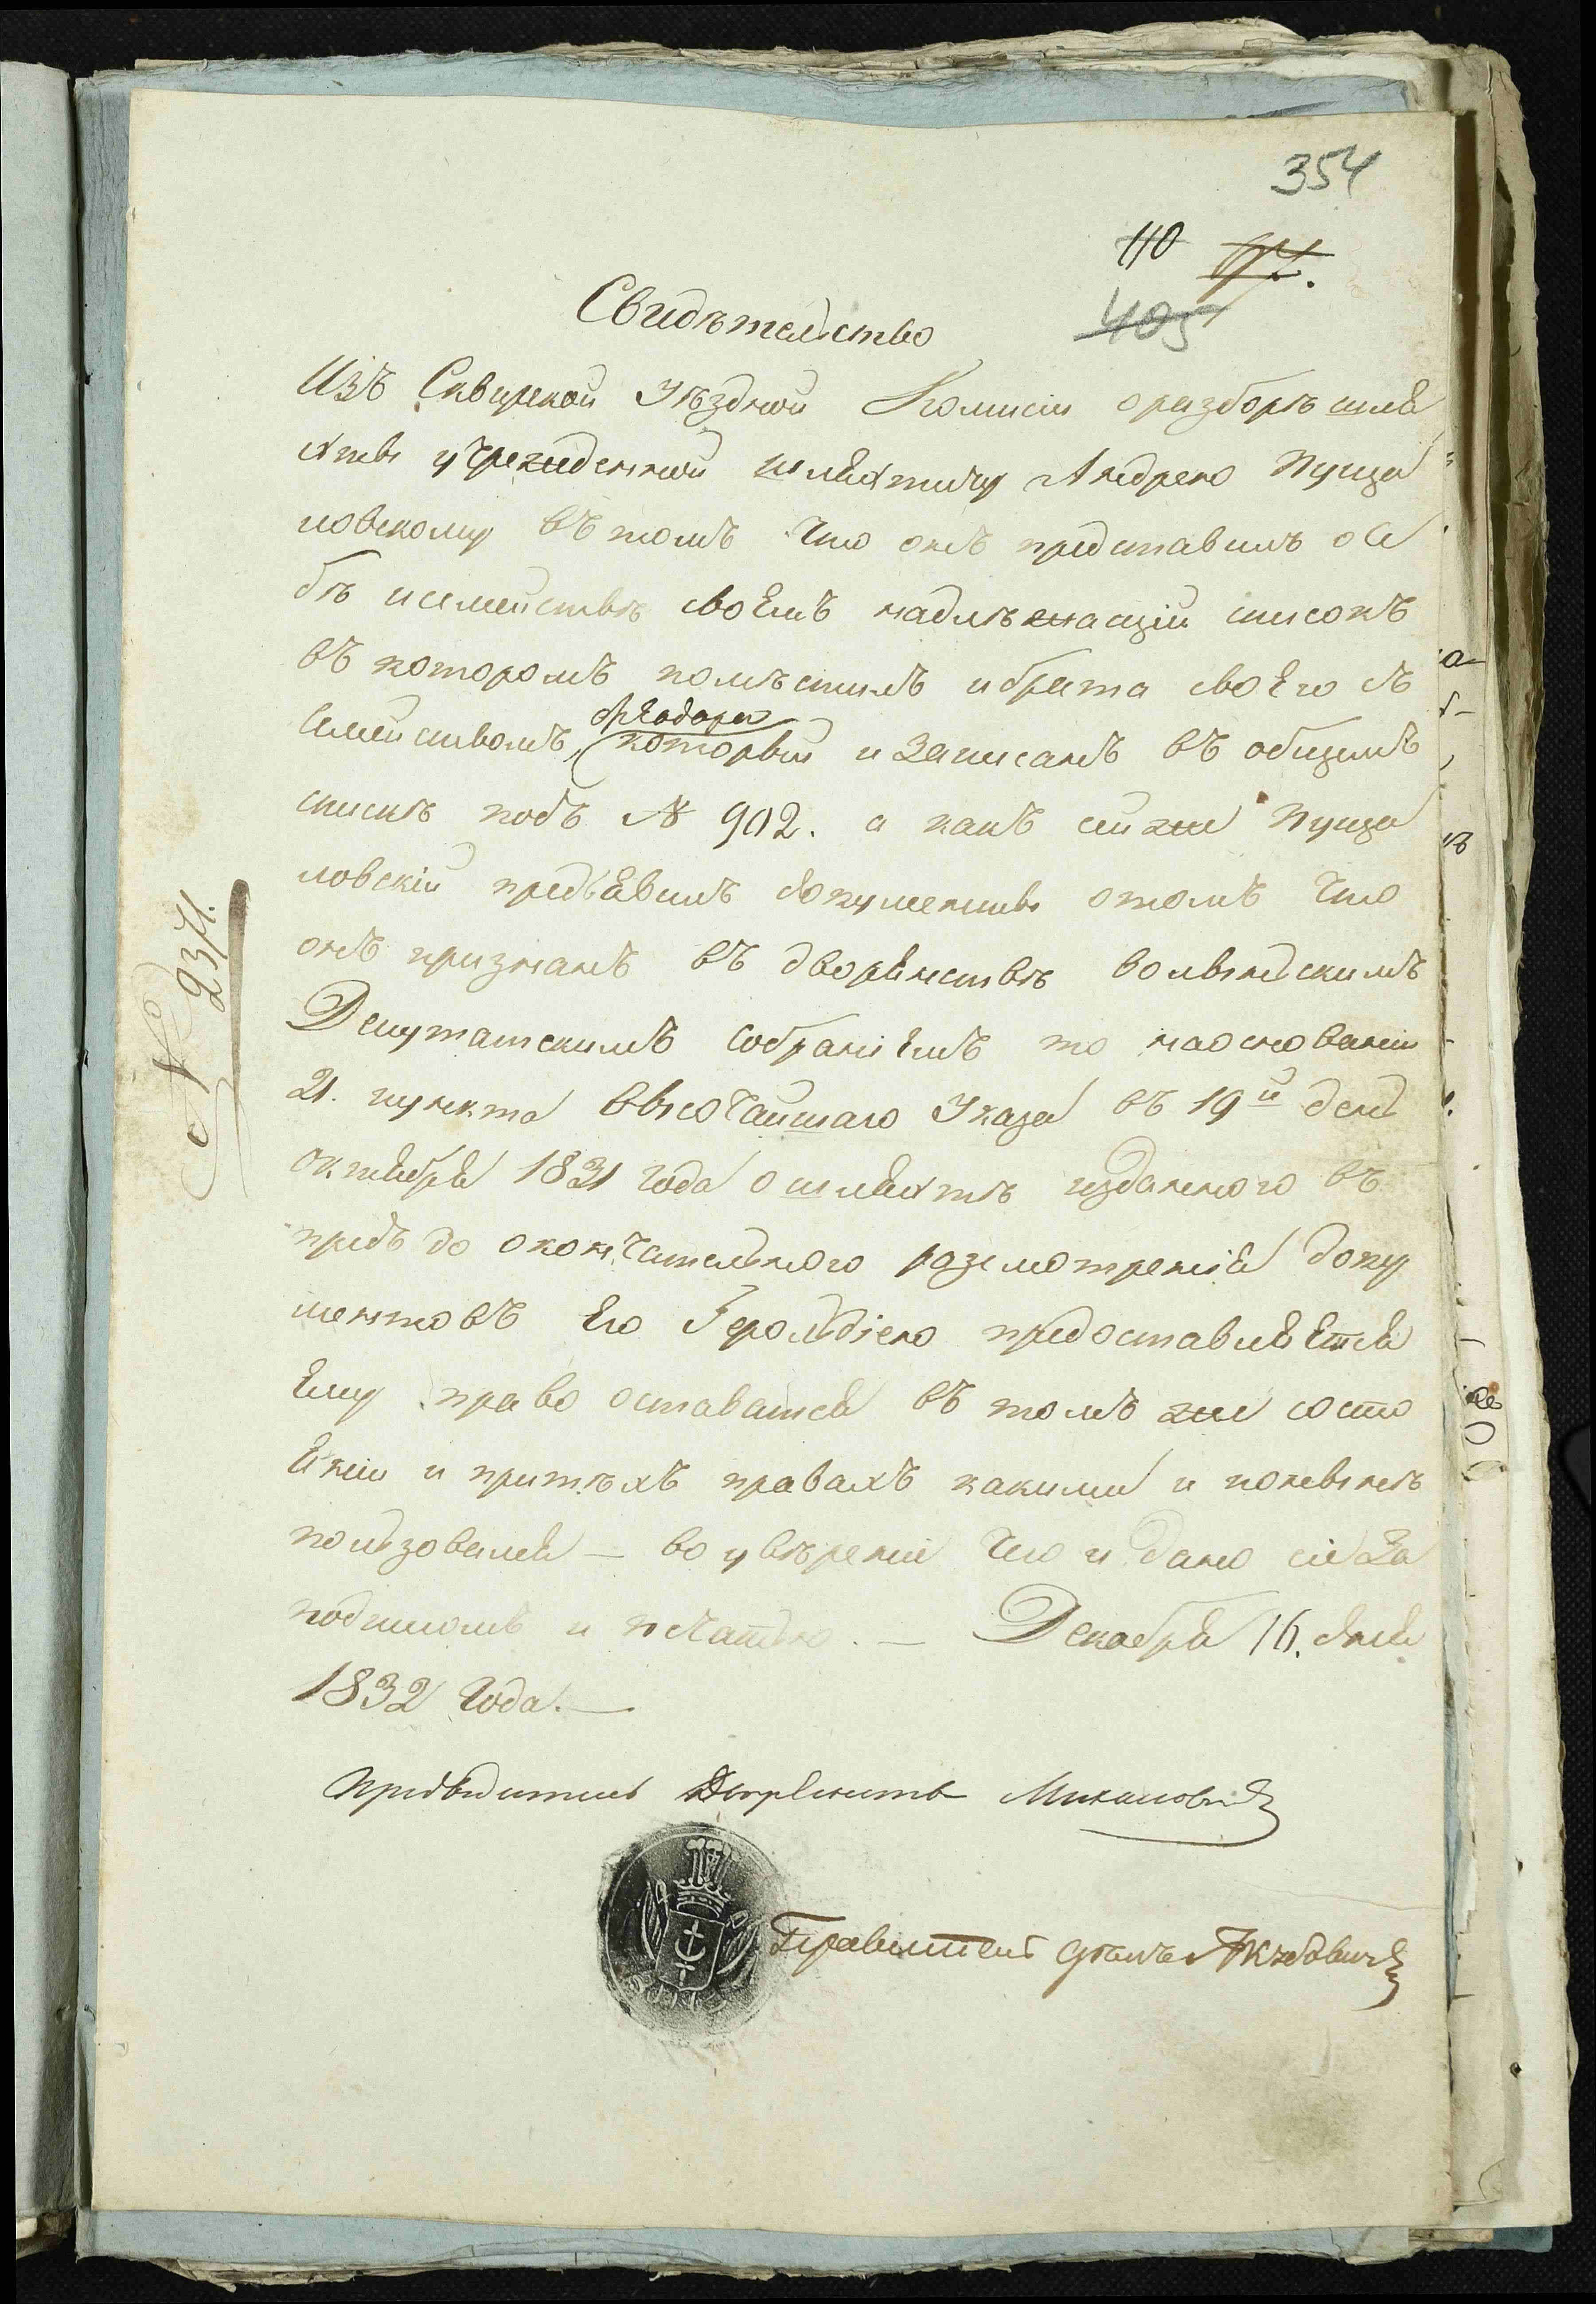 354
110
405
Свидѣтельство
Изъ Сквирской Уѣздной Комисіи о разборѣ шля
хты учрежденной шляхтичу Андрею Пуца
ловскому въ томъ что онъ представилъ о се
бѣ и семействѣ своемъ надлежащій списокъ
въ которомъ помѣстилъ и брата своего съ
Семействомъ, Ѳеодора
который и записанъ въ общемъ
спискѣ подъ № 902. а какъ сей же Пуца
ловскій предъявилъ документы о томъ что
онъ признанъ въ дворянствѣ волынскимъ
Депутатскимъ собраніемъ то на основаніи
21. пункта высочайшаго Указа въ 19й день
октября 1831 года о шляхтѣ изданного въ
предъ до окончательного разсмотренія доку
ментовъ его Герольдіею предоставляется
ему право остаться въ томъ же состо
яніи и при тѣхъ правахъ какими и понынѣ
пользовался — во увѣреніе чего и дано сіе за
подписомъ и печатью. — Декабря 16. дня
1832 года. —
№ 2371.
Предводитель Дворянства
Правитель дѣлъ